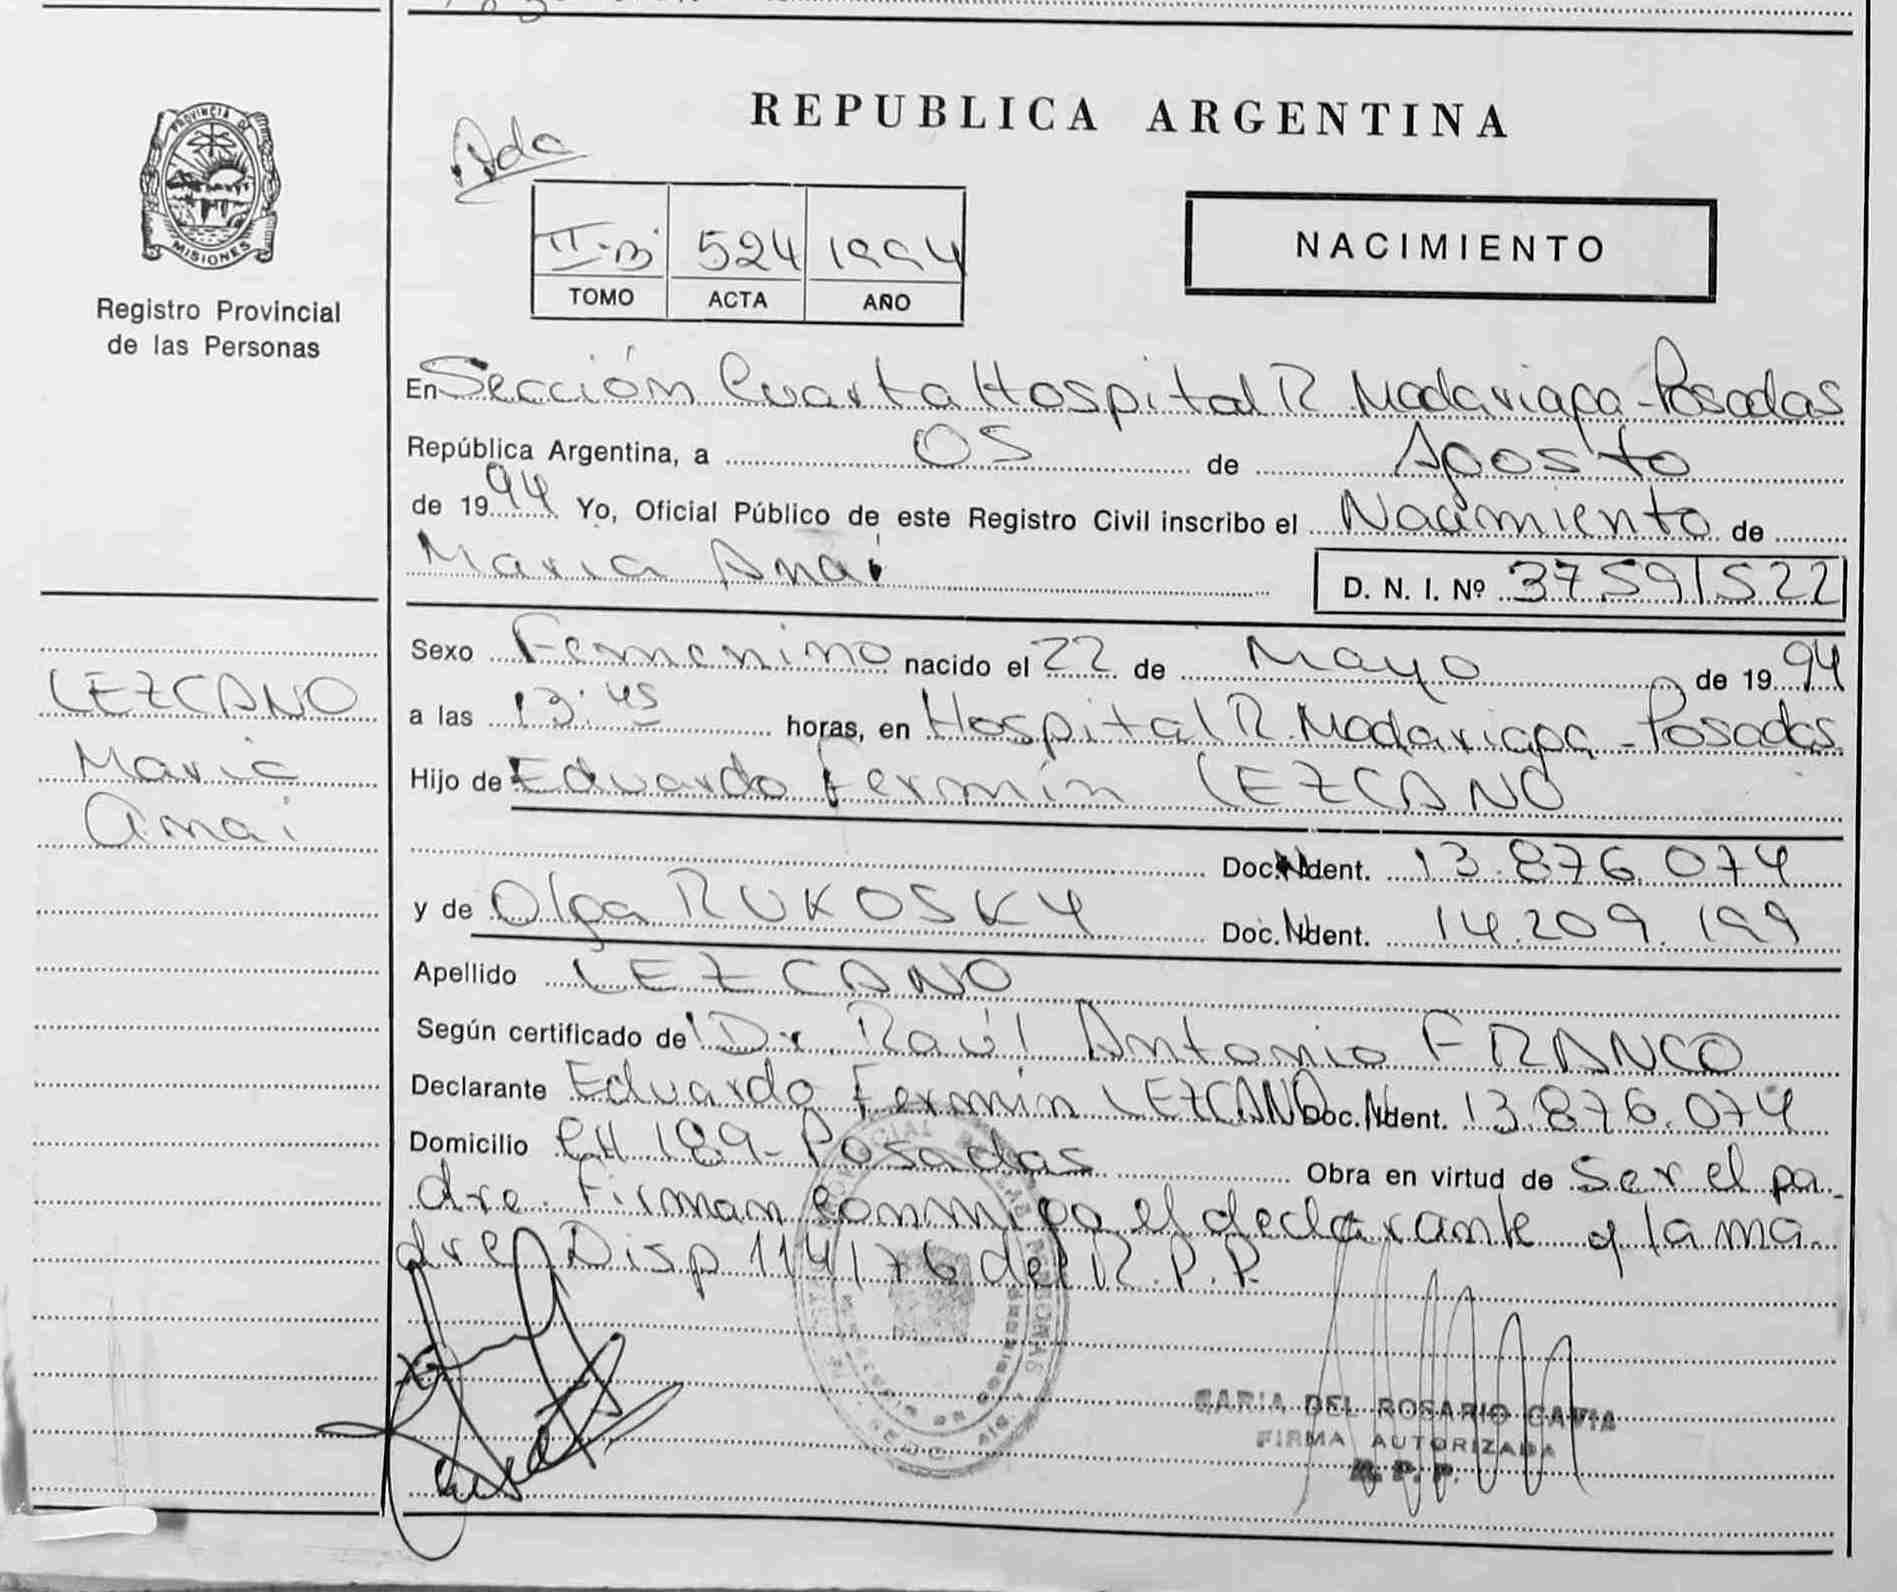 REPUBLICA ARGENTINA
PROVINCIA DE
MISIONES
Registro Provincial
de las Personas
II-B 524 1994
TOMO ACTA AÑO
NACIMIENTO
En Sección Cuarta Hospital R. Madariaga - Posadas
República Argentina, a 05 de Agosto
de 1994 Yo, Oficial Público de este Registro Civil inscribo el Nacimiento de
Maria Anai D. N. I. Nº 37591522
Sexo Femenino nacido el 22 de Mayo de 1994
a las 13:45 horas, en Hospital R. Madariaga - Posadas
Hijo de Eduardo Fermín LEZCANO
Doc. Ident. 13.876.074
y de Olga RUKOSKY Doc. Ident. 14.209.199
Apellido LEZCANO
Según certificado de Dr. Raúl Antonio FRANCO
Declarante Eduardo Fermín LEZCANO Doc. Ident. 13.876.074
Domicilio CH 189 - Posadas Obra en virtud de Ser el pa-
dre. Firman conmigo el declarante y la ma-
dre Disp 114/76 del R.P.P.
LEZCANO
Maria
Anai
MARIA DEL ROSARIO
FIRMA AUTORIZADA
R. P. P.